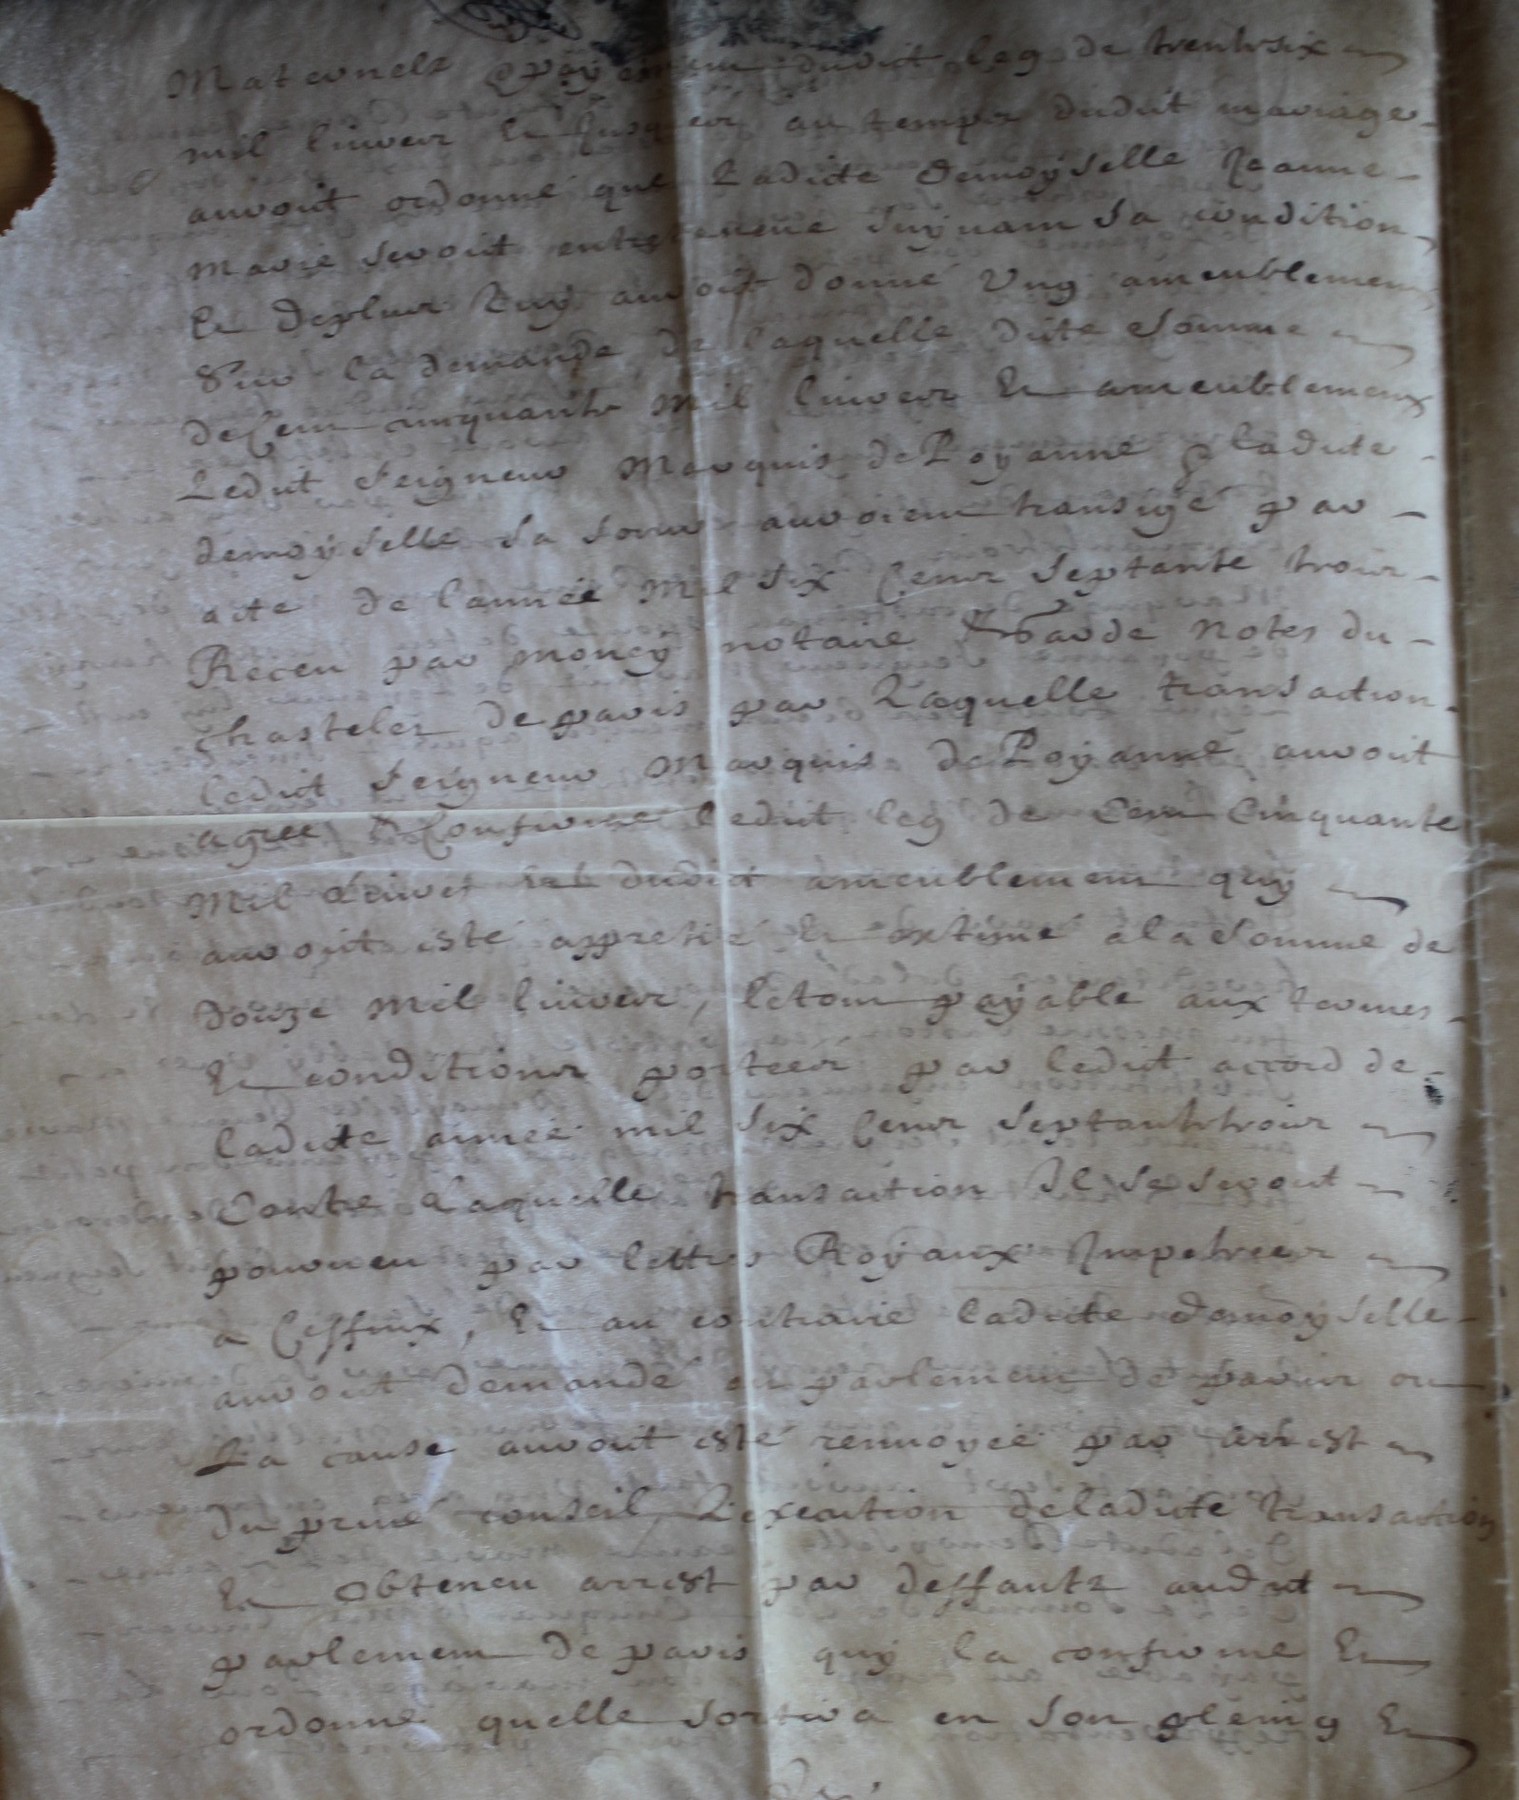 Maternelz payement dudit leg de trentesix
mil livres Et Jusques au temps dudit mariage
auroit ordonné que Ladicte demoyselle Jeanne
Marie seroit entretenue suyvant sa condition
Et deplus Luy auroit donné Ung ameublement
Sur la demande de laquelle dite somme
de Cent cinquante mil livres Et ameublement
Ledit seigneur Marquis de Poyanne & ladite
demoyselle sa soeur auroient transigé par
acte de l'année mil six Cens septante trois
Receu par Money notaire Garde notes du
Chastelet de paris par Laquelle transaction
ledit seigneur Marquis de Poyanne auroit
agreé & Confirmé ledit leg de Cent Cinquante
mil Livres dudit ameublement quy
auroit esté appretié Et extimé a la somme de
douze mil livres, le tout payable aux termes
Et conditions porteés par ledit accord de
ladite année mil six Cens septante trois
Contre Laquelle transaction Il se seroit
pourveu par lettres Royaux Impetreés
a Ces fins, Et au contraire ladite demoyselle
auroit demandé au parlement de paris ou
La cause auroit esté renvoyeé par arrest
du privé conseil L'execution de ladite transaction
Et obteneu arrest par deffautz audit
parlement de paris quy la confirme Et
ordonne quelle sortira en son pleing Et